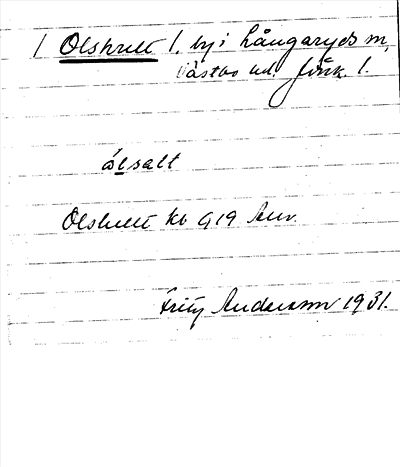 1 Olshult 1. by i Långaryds sn,
Västbo hd. Jönk. l.
ólsalt
Olshult kb 919 Anv.
Fritz Andersson 1931.